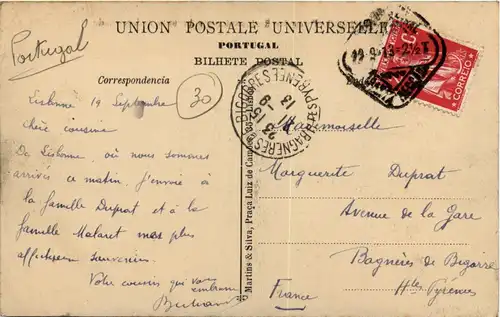 UNION POSTALE UNIVERSELLE
PORTUGAL
BILHETE POSTAL
Portugal
Correspondencia
30
CORREIO
BAGNERES DE BIGORRE
HTES PYRENEES
Lisbonne 19 Septembre
chère cousine
De Lisbonne, où nous sommes
arrivés ce matin, j'envoie à
la famille Duprat et à la
famille Malaret mes plus
affectueux souvenirs.
Votre cousin qui vous
embrasse
Bertrand
Martins & Silva, Praça Luiz de Camões, 35 - Lisboa
Mademoiselle
Marguerite Duprat
Avenue de la Gare
Bagnères de Bigorre
Htes Pyrénées
France